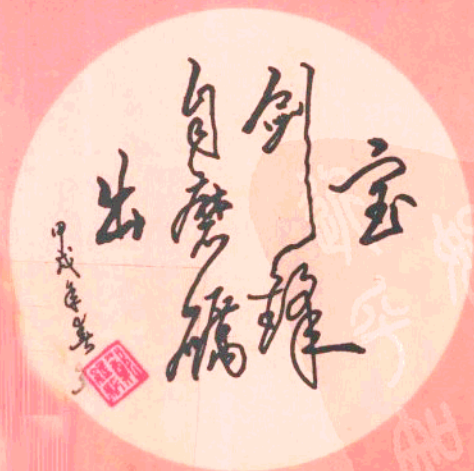 宝
剑锋
自磨砺
出
甲戌年春